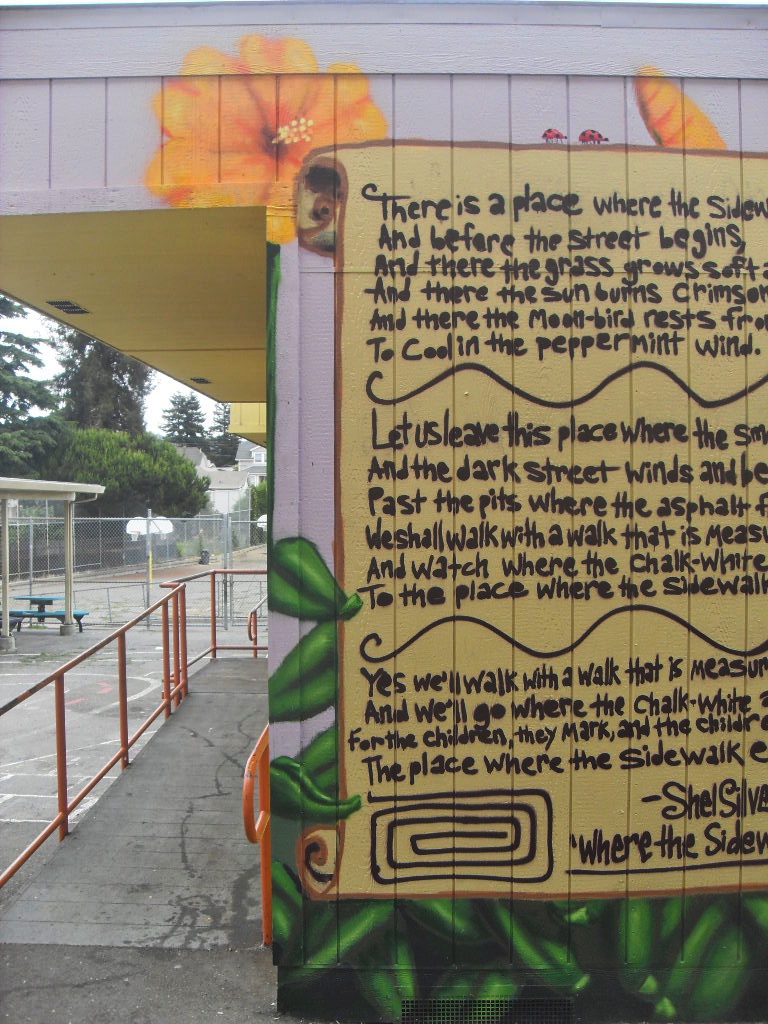 There is a place where the Sidew
And before the street begins,
And there the grass grows soft a
And there the sun burns Crimson
And there the Moon-bird rests fro
To Cool in the peppermint wind.
Let us leave this place where the sm
And the dark street winds and be
Past the pits where the asphalt f
We shall walk with a walk that is Measu
And watch where the Chalk-White
To the place where the sidewalk
Yes we'll walk with a walk that is measur
And we'll go where the Chalk-white a
For the children, they Mark, and the childre
The place where the sidewalk e
-Shel Silve
"Where the Sidew